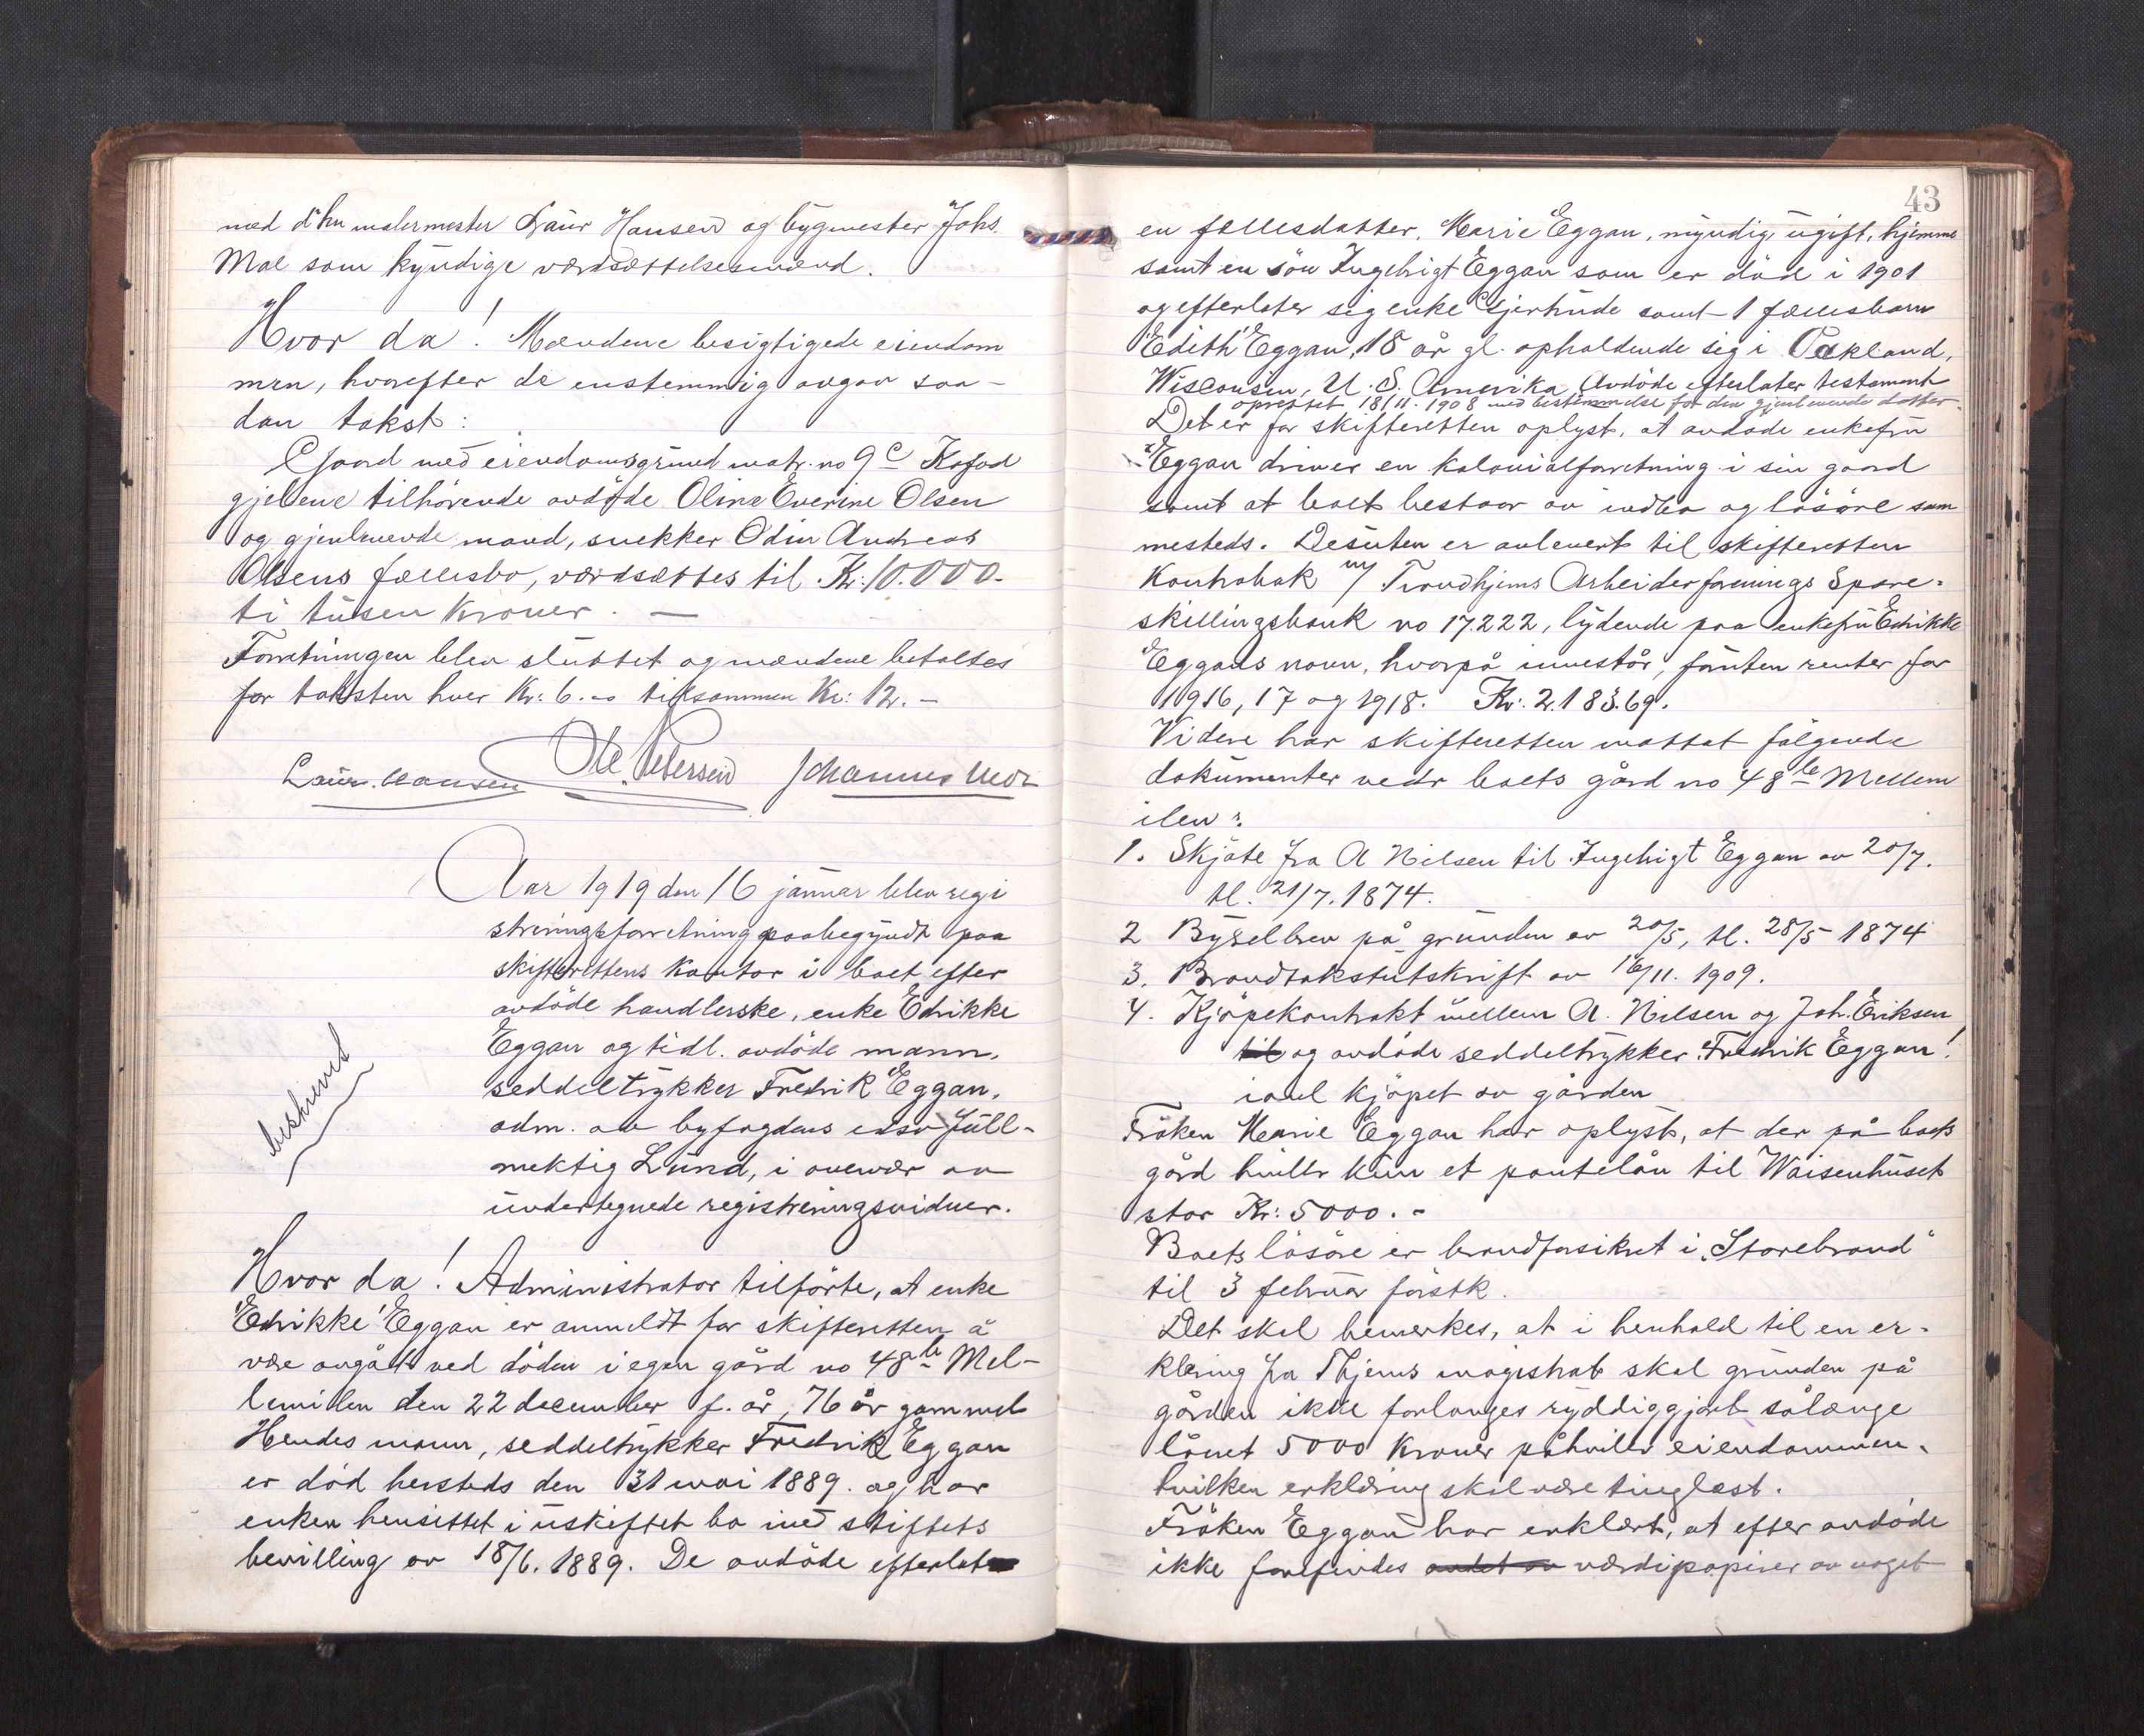 med d'hrr malermester Laur Hansen og bygmester Johs.
Moe som kyndige værdsættelsesmænd.
Hvor da! Mændene besigtigede eiendom
men, hvorefter de enstemmig avgav saa-
dan takst:
Gaard med eiendomsgrund matr. no 9c Kofod
gjelene tilhörende avdöde Oline Everine Olsen
og gjenlevende mand, snekker Odin Andreas
Olsens fællesbo, værdsættes til Kr: 10.000.-
ti tusen kroner. —
Forretningen blev sluttet og mændene betaltes
for taksten hver Kr: 6.- tilsammen Kr: 12.-
Laur. Hansen Ole Petersen Johannes Moe
Aar 1919 den 16 januar blev regi
streringsforretning paabegyndt paa
skifterettens kontor i boet efter
avdöde handlerske, enke Edrikke
Eggan og tidl. avdöde mann,
seddeltrykker Fredrik Eggan,
adm. av byfogdens edsv. full-
mektig Lund, i overvær av
undertegnede registreringsvidner.
beskrevet
Hvor da! Administrator tilförte, at enke
Edrikke Eggan er anmeldt for skifteretten å
være avgått ved döden i egen gård no 48b Mel-
lemilen den 22 december f. år, 76 år gammel
Hendes mann, seddeltrykker Fredrik Eggan
er död hersteds den 31 mai 1889. og har
enken hensittet i uskiftet bo med stiftets
bevilling av 18/6. 1889. De avdöde efterlot
43
en fællesdatter, Marie Eggan, myndig, ugift, hjemme
samt en sön Ingebrigt Eggan som er död i 1901
og efterlater sig enke Gjertrude samt 1 fællesbarn
Edith Eggan, 18 år gl. opholdende sig i Oakland,
Wisconsin, U. S. Amerika. Avdöde efterlater testament
oprettet 18/11. 1908 med bestemmelse for den gjenlevende datter.
Det er for skifteretten oplyst, at avdöde enkefru
Eggan driver en kolonialforretning i sin gaard
samt at boet bestaar av indbo og lösöre sam
mesteds. Desuten er avlevert til skifteretten
Kontrabok m/ Trondhjems Arbeiderforenings Spare-
skillingsbank no 17.222, lydende paa enkefru Edrikke
Eggans navn, hvorpå innestår, foruten renter for
1916, 17 og 1918. Kr: 2.183.69.
Videre har skifteretten mottat fölgende
dokumenter vedr boets gård no 48b Mellem
ilen:
1. Skjöte fra A Nilsen til Ingebrigt Eggan av 20/7.
tl. 21/7. 1874.
2 Bygselbrev på grunden av 20/5, tl. 28/5 1874
3. Brandtakstutskrift av 16/11. 1909.
4. Kjöpekontrakt mellem A. Nilsen og Joh. Eriksen
til og avdöde seddeltrykker Fredrik Eggan!
iael kjöpet av gården
Fröken Marie Eggan har oplyst, at der på boets
gård hviler kun et pantelån til Waisenhuset
stor Kr: 5000.-
Boets lösöre er brandforsikret i „Storebrand"
til 3 februar förstk.
Det skal bemerkes, at i henhold til en er-
klæring fra Thjems magistrat skal grunden på
gården ikke forlanges ryddiggjort sålænge
lånet 5000 kroner påhviler eiendommen,
hvilken erklæring skal være tinglæst.
Fröken Eggan har erklært, at efter avdöde
ikke forefindes andet av værdipapirer av noget